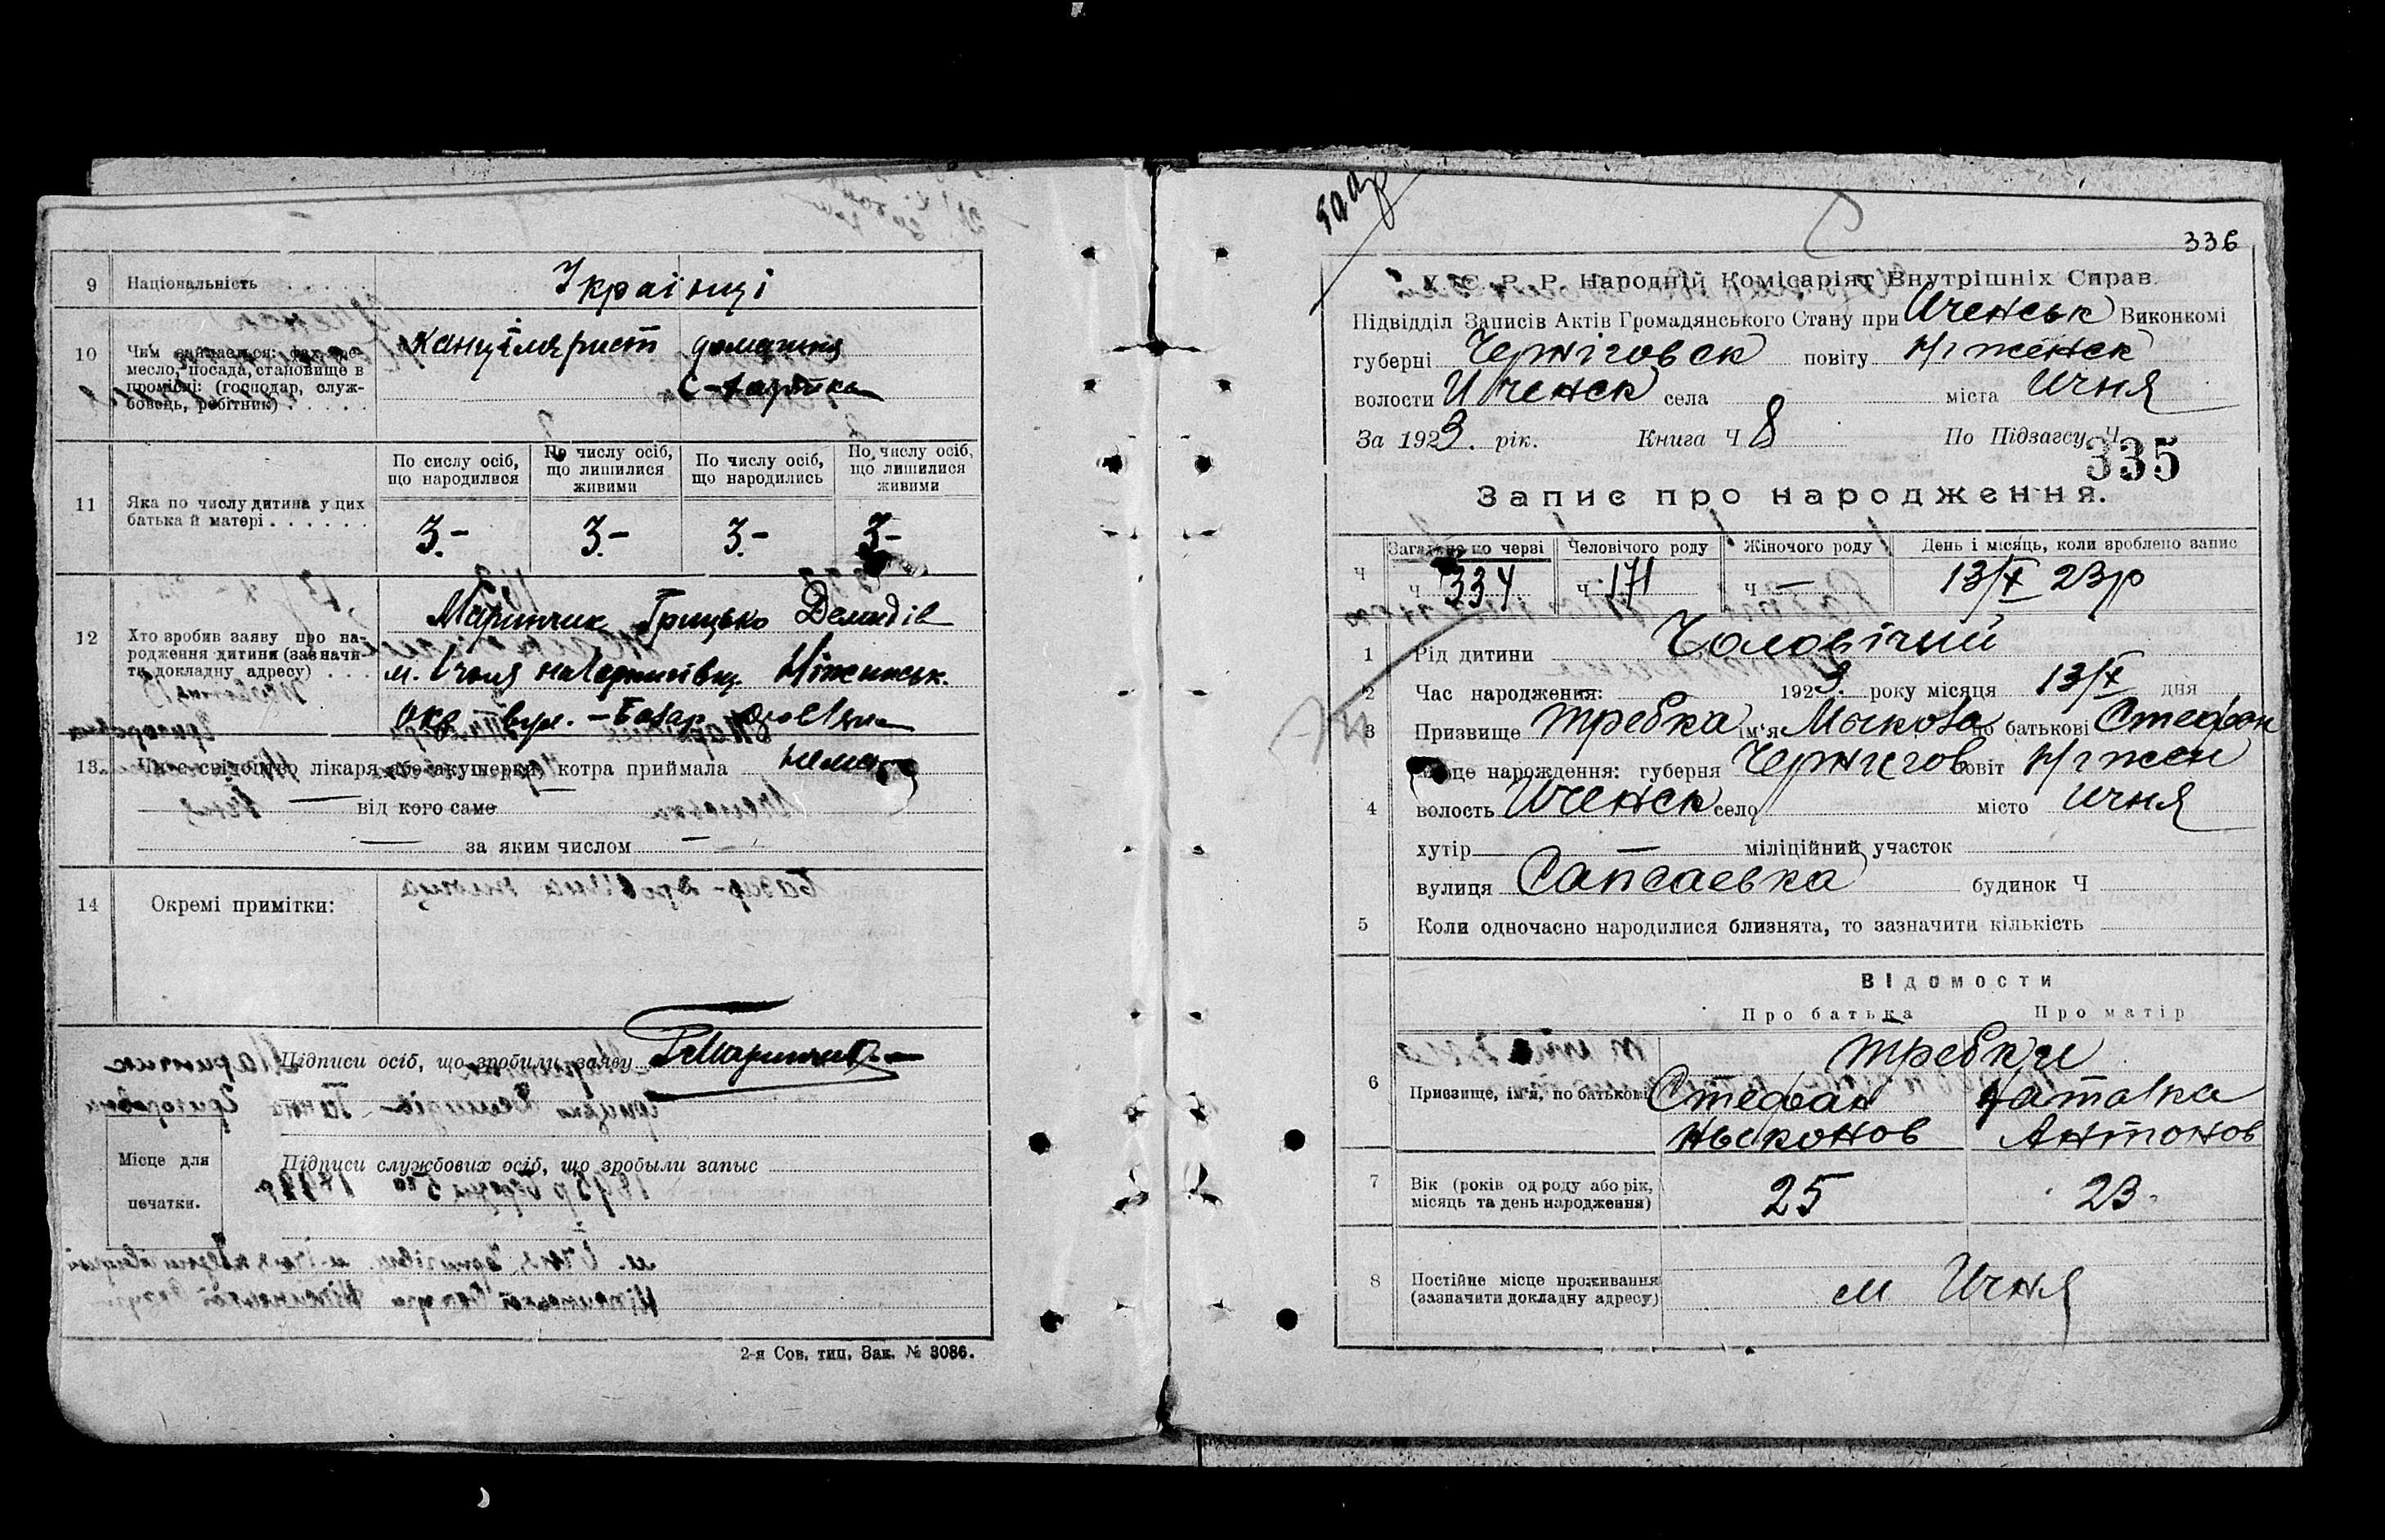 9 Національність . . . . . Українці
10 Чим займається: фах, ре-
месло, посада, становище в
промислі: (господар, служ-
бовець, робітник) . . . . .
Канцілярист домашня
11 Яка по числу дитина у цих
батька й матері . . . . . .
По сислу осіб, що народилися
По числу осіб, що лишилися живими
По числу осіб, що народились
По числу осіб, що лишилися живими
3.- 3.- 3.- 3-
12 Хто зробив заяву про на-
родження дитини (зазначи-
ти докладну адресу) . . .
Маринчик Грицько Демидів
м. Ічня на Чернигівщ. Ніженськ.
окр вул. - Базар
13. Чи є свідоцтво лікаря або акушерки, котра приймала нема
— від кого саме
— за яким числом —
14 Окремі примітки:
Підписи осіб, що зробили заяву ГМаринчик
Місце для
печатки.
Підписи службових осіб, що зробыли запыс
2-я Сов. тип. Зак. № 3086.
336
У. С. Р. Р. Народній Комісаріят Внутрішніх Справ
Підвідділ Записів Актів Громадянського Стану при Иченськ Виконкомі
губерні Черніговск повіту Ніженск
волости Иченск села міста Ичня
За 1923. рік. Книга Ч 8 По Підзагсу Ч
335
Запис про народження.
Ч Загально по черві Человічого роду Жіночого роду День і місяць, коли зроблено запис
Ч 334 Ч 171 Ч — 13/X 23р
1 Рід дитини Чоловічий
2 Час народження: 1923. року місяця 13/X дня
3 Призвище Требка ім‘я Мыкола по батькові Стефан
Місце нарождення: губерня Чернигов повіт Ніжен
4 волость Иченск село місто Ичня
хутір — міліційний участок
вулиця Сапсаевка будинок Ч
5 Коли одночасно народилися близнята, то зазначити кількість
Відомости
Про батька Про матір
Требки
6 Призвище, ім‘я, по батькові Стефан Наталка
Ныконов Антонов
7 Вік (років од роду або рік,
місяць та день народження) 25 23
8 Постійне місце проживання
(зазначити докладну адресу) м Ичня